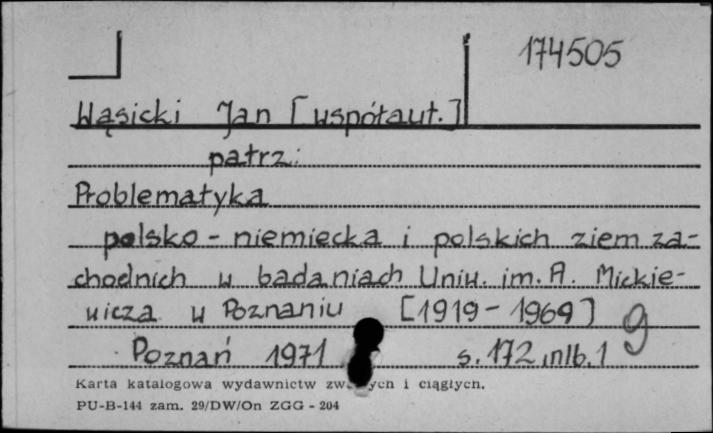 174505
Wąsicki Jan [współaut.]
patrz:
Problematyka
polsko - niemiecka i polskich ziem za-
chodnich w badaniach Uniw. im. A. Mickie-
wicza w Poznaniu [1919 - 1969]
9
Poznań 1971 s. 172, nlb. 1
Karta katalogowa wydawnictw zw ych i ciągłych.
PU-B-144 zam. 29/DW/On ZGG - 204